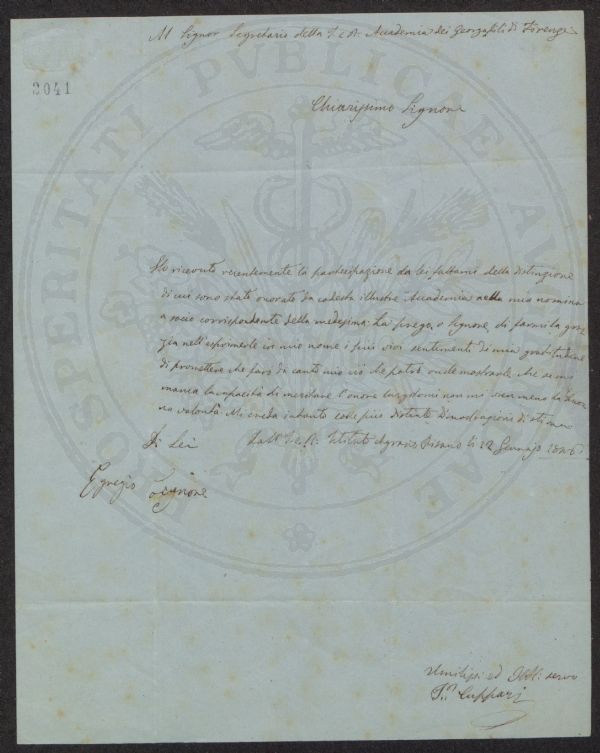 Al Signor Segretario della I. e R. Accademia dei Georgofili di Firenze
2041
Chiarissimo Signore
Ho ricevuto recentemente la partecipazione da lei fattami della distinzione
di cui sono stato onorato da codesta illustre Accademia nella mia nomina
a socio corrispondente della medesima. La prego, o Signore, di farmi la gra-
zia nell'esprimerle in mio nome i più vivi sentimenti di mia gratitudine
di promettere che farò da canto mio ciò che potrò onde mostrarle che se mi
manca la capacità di meritare l'onore largitomi non mi vien meno la buo-
na volontà. Mi creda intanto colle più distinte dimostrazioni di stima
Di Lei Dall'I. e R. Istituto Agrario Pisano li 12 Gennajo 1846
Egregio Signore
Umiliss. ed Obb. servo
P. Cuppari
PROSPERITATI PVBLICAE AVGENDAE